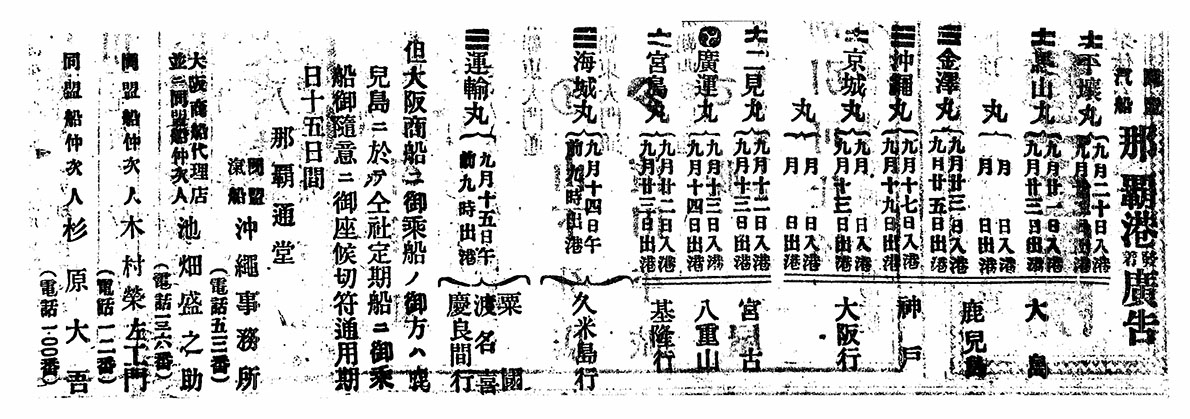 同盟汽船 那覇港發着廣告
平壤丸 九月二十日入港
大島
九月廿一日入港
九月廿三日出港
鹿兒島
丸 月 日入港
月 日出港
金澤丸 九月廿三日入港
九月廿五日出港
神戸
沖繩丸 九月十七日入港
九月十九日出港
大阪行
京城丸 月 日入港
九月十三日出港
丸 月 日入港
月 日出港
二見丸 九月十二日入港
九月十三日出港
宮古
廣運丸 九月十三日入港
九月十四日出港
八重山
宮島丸 九月廿二日入港
九月廿三日出港
基隆行
海城丸 九月十四日午前九時出港
久米島行
運輸丸 九月十五日午前九時出港
粟國
渡名喜
慶良間行
但大阪商船ニ御乘船ノ御方ハ鹿
兒島ニ於テ仝社定期船ニ御乘
船御隨意ニ御座候切符通用期
日十五日間
那覇通堂
同盟滊船 沖繩事務所
(電話五三番)
大阪商船代理店
並ニ同盟船仲次人 池畑盛之助
(電話一三六番)
同盟船仲次人 木村榮左エ門
(電話一一二番)
同盟船仲次人 杉原大吾
(電話一〇〇番)